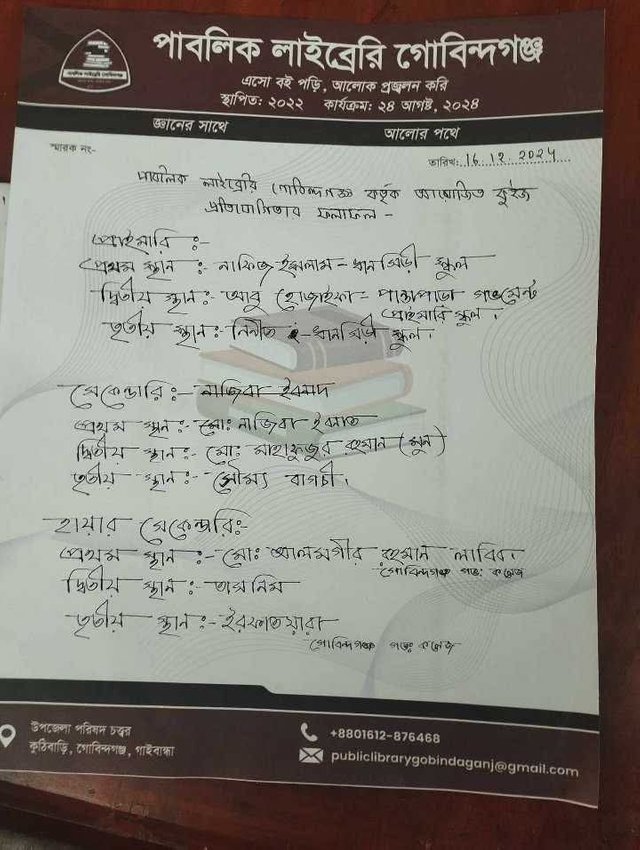 পাবলিক লাইব্রেরি গোবিন্দগঞ্জ
এসো বই পড়ি, আলোক প্রজ্বলন করি
স্থাপিত: ২০২২ কার্যক্রম: ২৪ আগষ্ট, ২০২৪
জ্ঞানের সাথে আলোর পথে
স্মারক নং-
তারিখ: 16.12.2024
পাবলিক লাইব্রেরি গোবিন্দগঞ্জ কর্তৃক আয়োজিত কুইজ
প্রতিযোগিতার ফলাফল -
প্রাইমারি :-
প্রথম স্থান :- নাফিজ ইসলাম - ধানসিড়ী স্কুল
দ্বিতীয় স্থান :- আবু হোজাইফা - পান্তাপাড়া গভমেন্ট
প্রাইমারি স্কুল।
তৃতীয় স্থান : - ধানসিড়ী স্কুল।
সেকেন্ডারি :- নাজিবা
প্রথম স্থান :- মো: নাজিবা ইবনাত
দ্বিতীয় স্থান :- মো: মাহাফুজুর রহমান (মুন)
তৃতীয় স্থান :- সৌম্য বাগচী।
হায়ার সেকেন্ডারি:-
প্রথম স্থান :- মো: আলমগীর রহমান লাবিব।
গোবিন্দগঞ্জ গভ: কলেজ
দ্বিতীয় স্থান :- তাসনিম
তৃতীয় স্থান :-
গোবিন্দগঞ্জ গভ: কলেজ
উপজেলা পরিষদ চত্বর
কুঠিবাড়ি, গোবিন্দগঞ্জ, গাইবান্ধা
+8801612-876468
publiclibrarygobindaganj@gmail.com